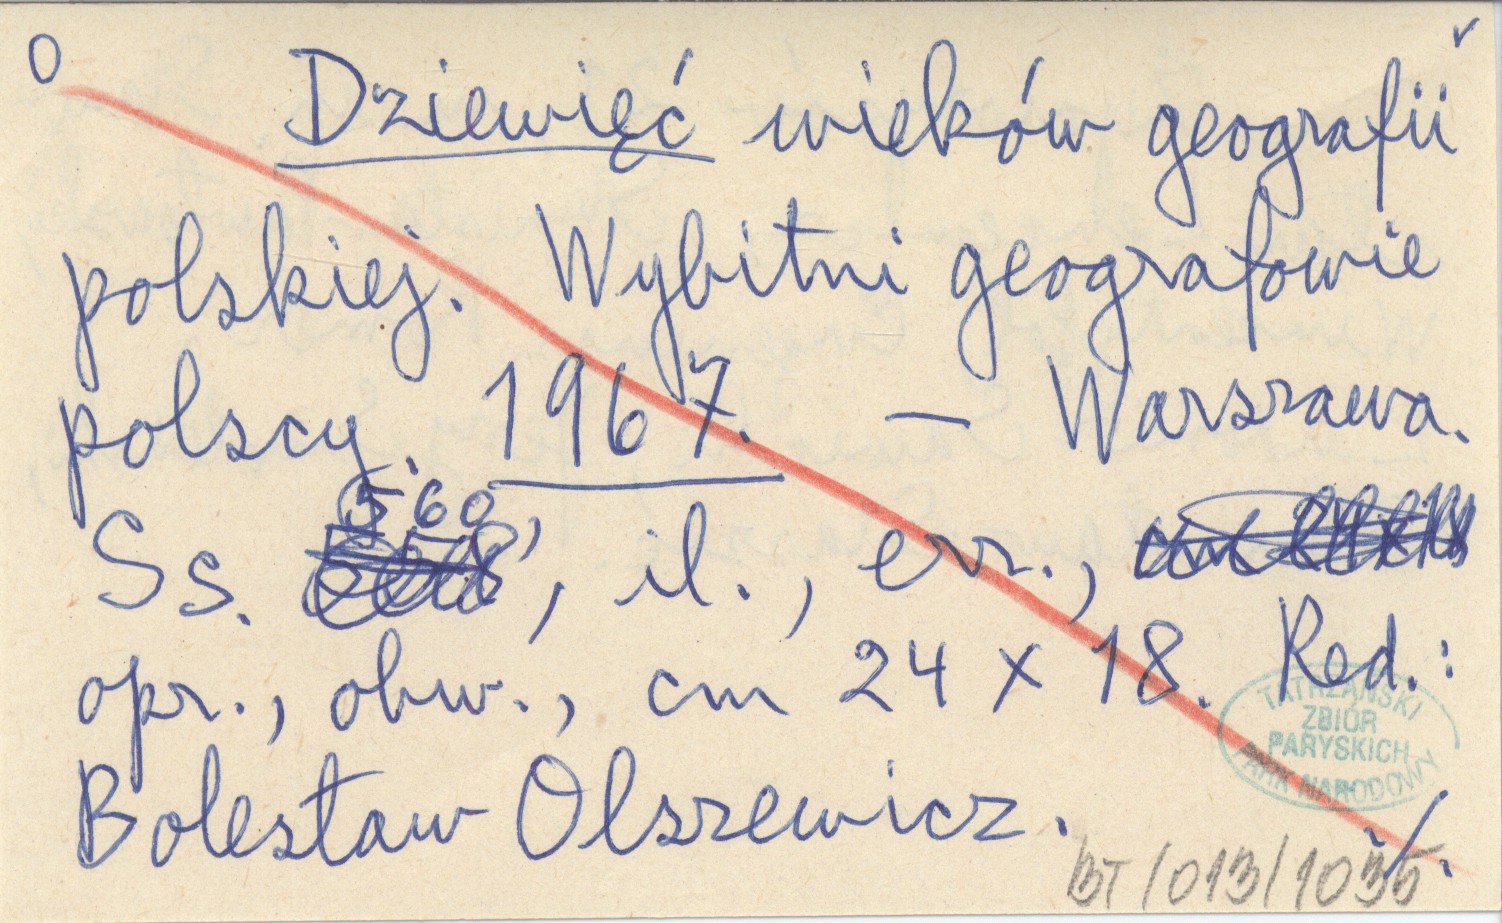 O
Dziewięć wieków geografii
polskiej. Wybitni geografowie
polscy. 1967. — Warszawa.
560
Ss. , il., err.,
opr., obw., cm 24 x 18. Red.:
Bolesław Olszewicz.
./.
TATRZAŃSKI
ZBIÓR
PARYSKICH
PARK NARODOWY
BT/013/1035